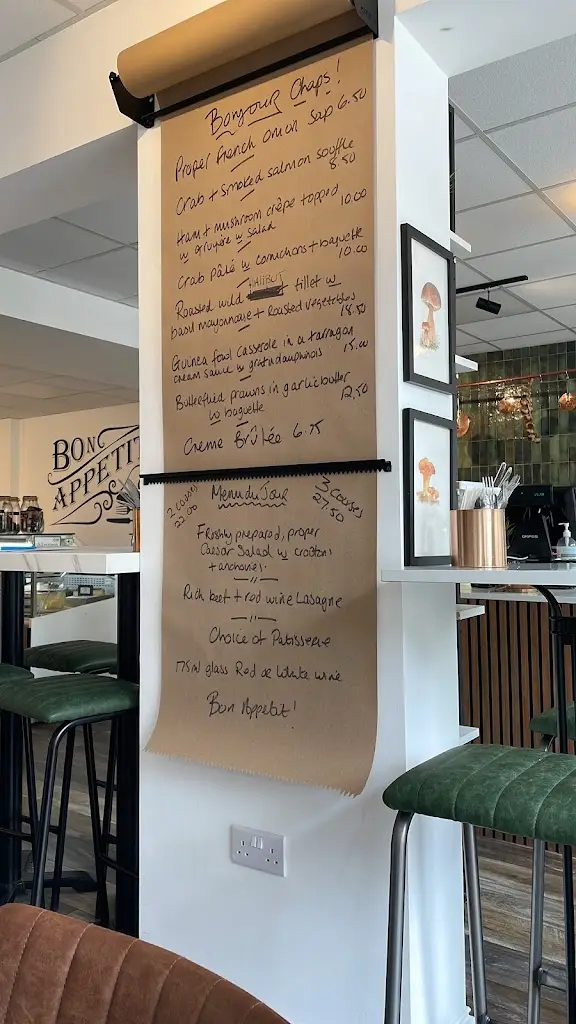 Bonjour Chaps!
Proper french onion sap 6.50
Crab + smoked salmon souffle
8.50
Ham + mushroom crêpe topped
w gruyère w salad 10.00
Crab pâté w cornichons + baguette
10.00
Roasted wild HALIBUT fillet w
basil mayonnaise + Roasted vegetables
18.50
Guinea fowl casserole in a tarragon
cream sauce w gratin dauphinois 15.00
Butterflied prawns in garlic butter
w baguette 12.50
Creme Brûlée 6.75
2 courses
22.00
Menu du Jour
3 courses
27.50
Freshly prepared, proper
Caesar Salad w croûtons
+ anchovies.
Rich beef + red wine Lasagne
Choice of Patisserie
175ml glass Red or White wine
Bon Appetit!
BON
APPETIT